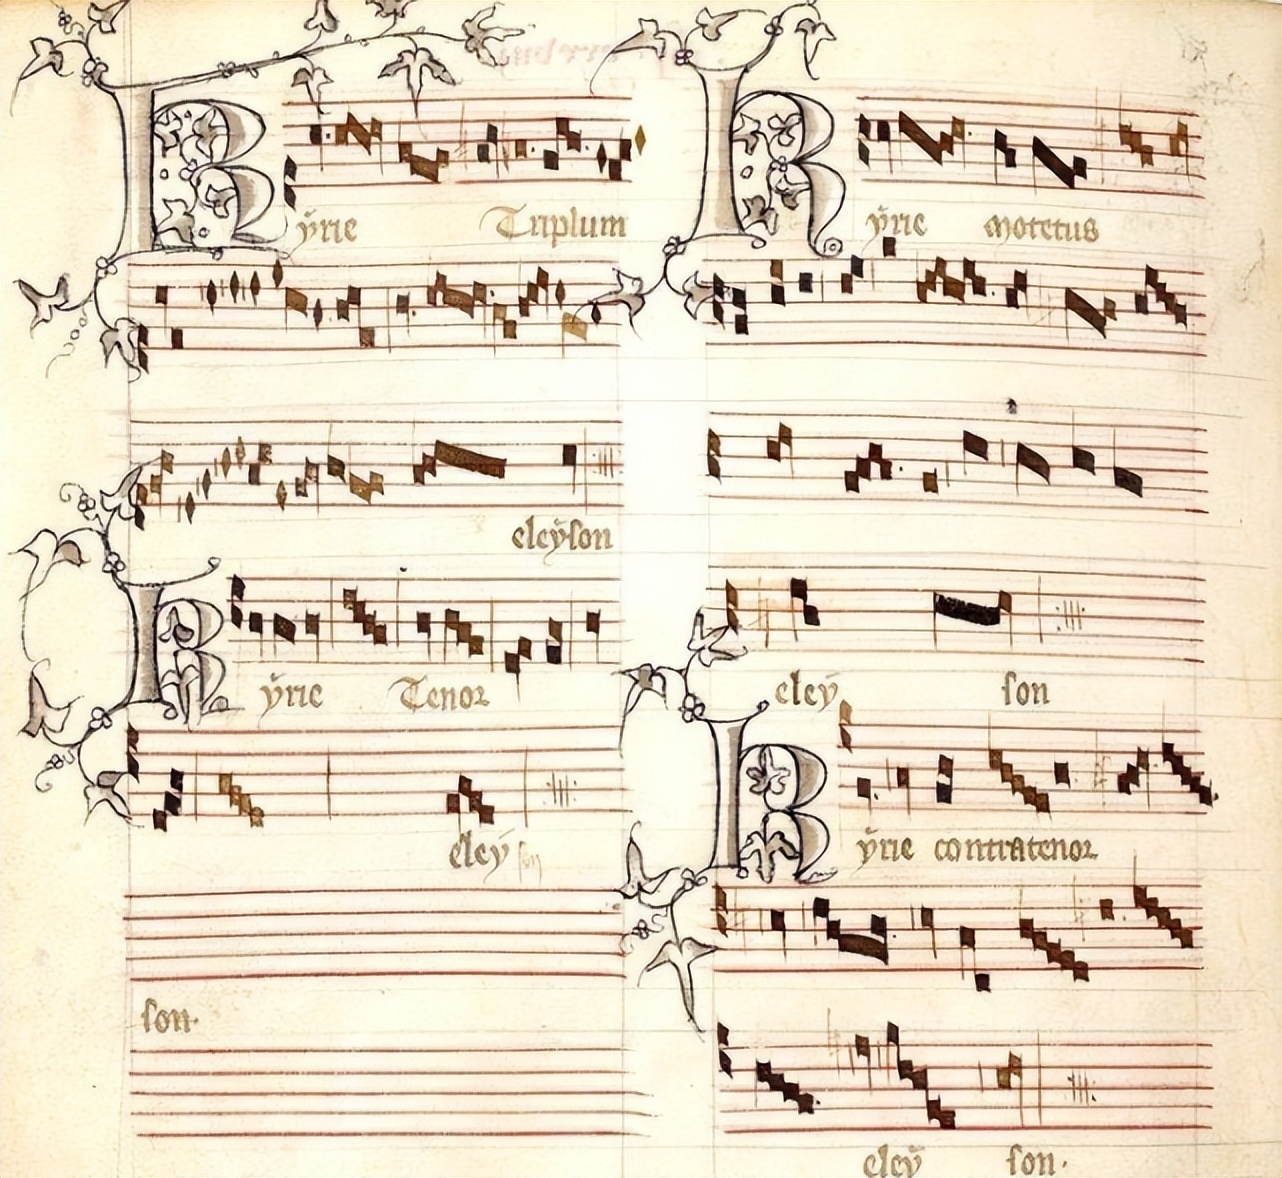 Kyrie Triplum
eleyson
Kyrie Tenor
eley son
son.
Kyrie Motetus
eley son
Kyrie contratenor
eley son.